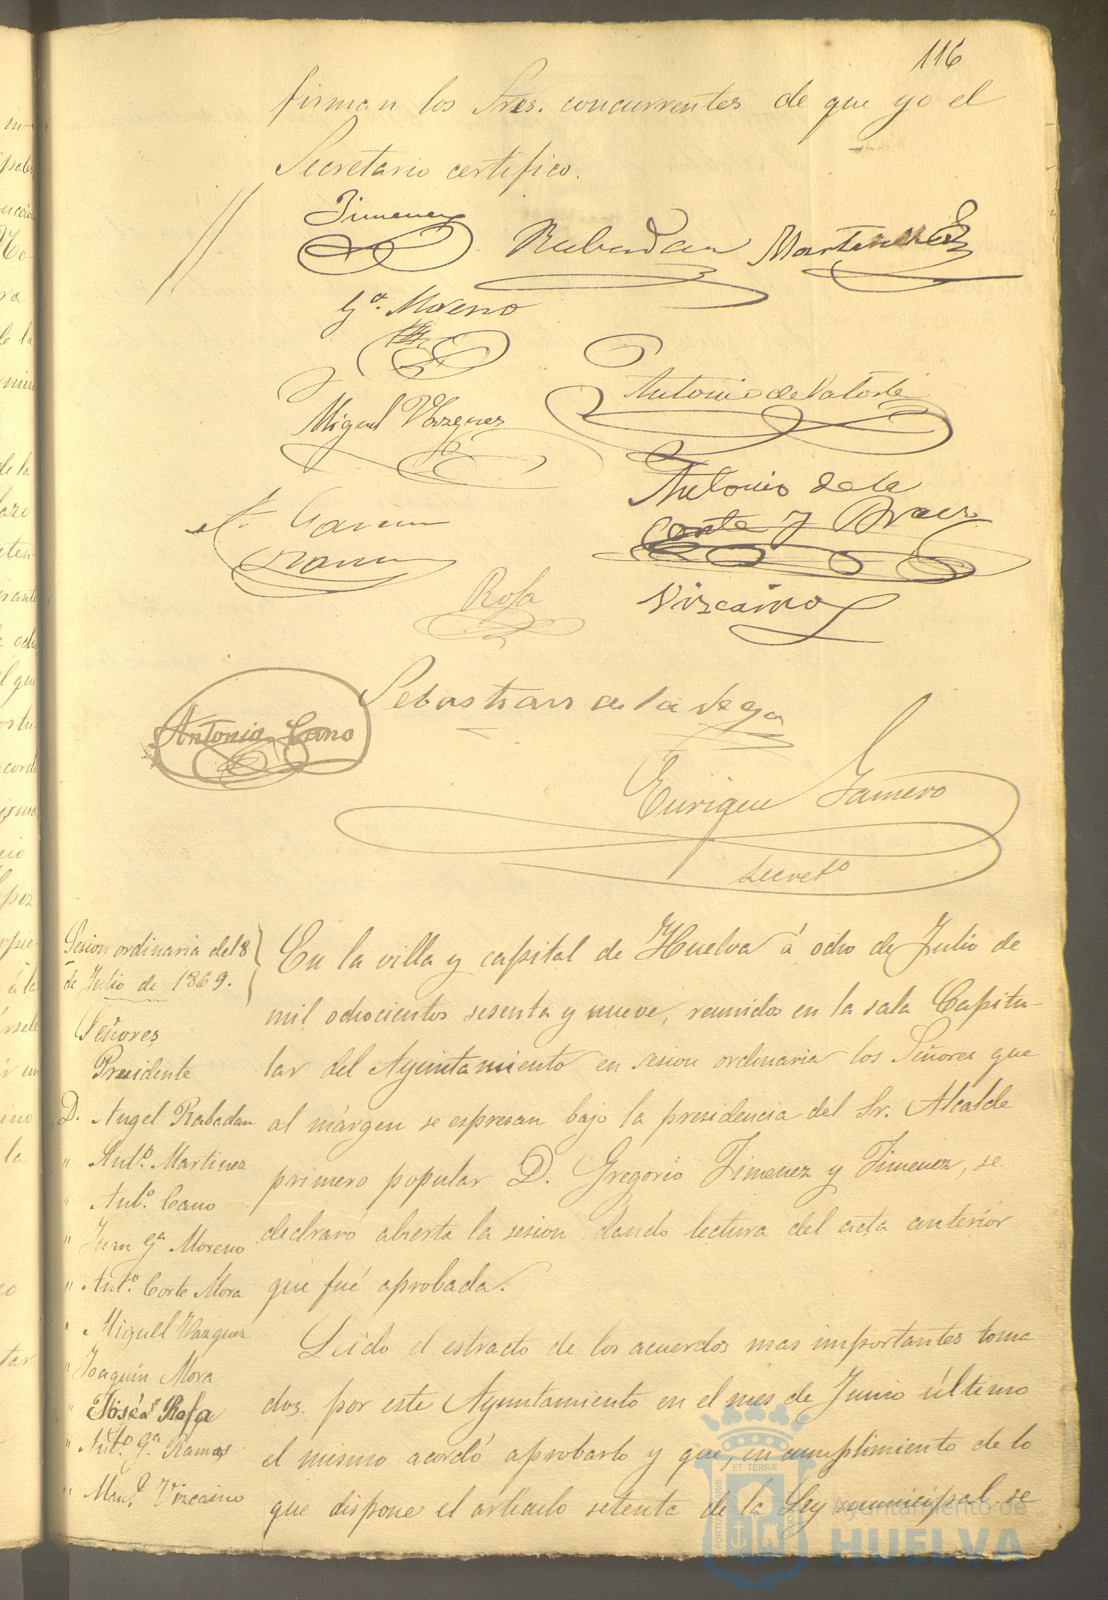 116
firman los Sres. concurrentes de que yo el
Secretario certifico.
Jimenez
Rabadan
Martinez
Ga. Moreno
Antonio de
Miguel Vazquez
Antonio de la
Corte y
A. Garcia
Ramos
Rofa
Vizcaino
Sebastian de la Vega
Antonio Cano
Enrique Gamero
Secreto
Sesion ordinaria del 8
de Julio de 1869.
Señores
Presidente
D. Angel Rabadan
" Anto. Martinez
" Anto. Cano
" Juan Ga. Moreno
" Anto. Corte Mora
" Miguel Vazquez
" Joaquin Mora
" José Rofa
" Anto. Ga. Ramos
" Manl. Vizcaino
En la villa y capital de Huelva á ocho de Julio de
mil ochocientos sesenta y nueve, reunidos en la sala Capitu-
lar del Ayuntamiento en sesion ordinaria los Señores que
al márgen se espresan bajo la presidencia del Sr. Alcalde
primero popular D. Gregorio Jimenez y Jimenez, se
declaró abierta la sesion dando lectura del acta anterior
que fué aprobada.
Leido el estracto de los acuerdos mas importantes toma
dos por este Ayuntamiento en el mes de Junio último
el mismo acordó aprobarlo y que, en cumplimiento de lo
que dispone el artículo setenta de la Ley municipal, se
Ayuntamiento de
HUELVA